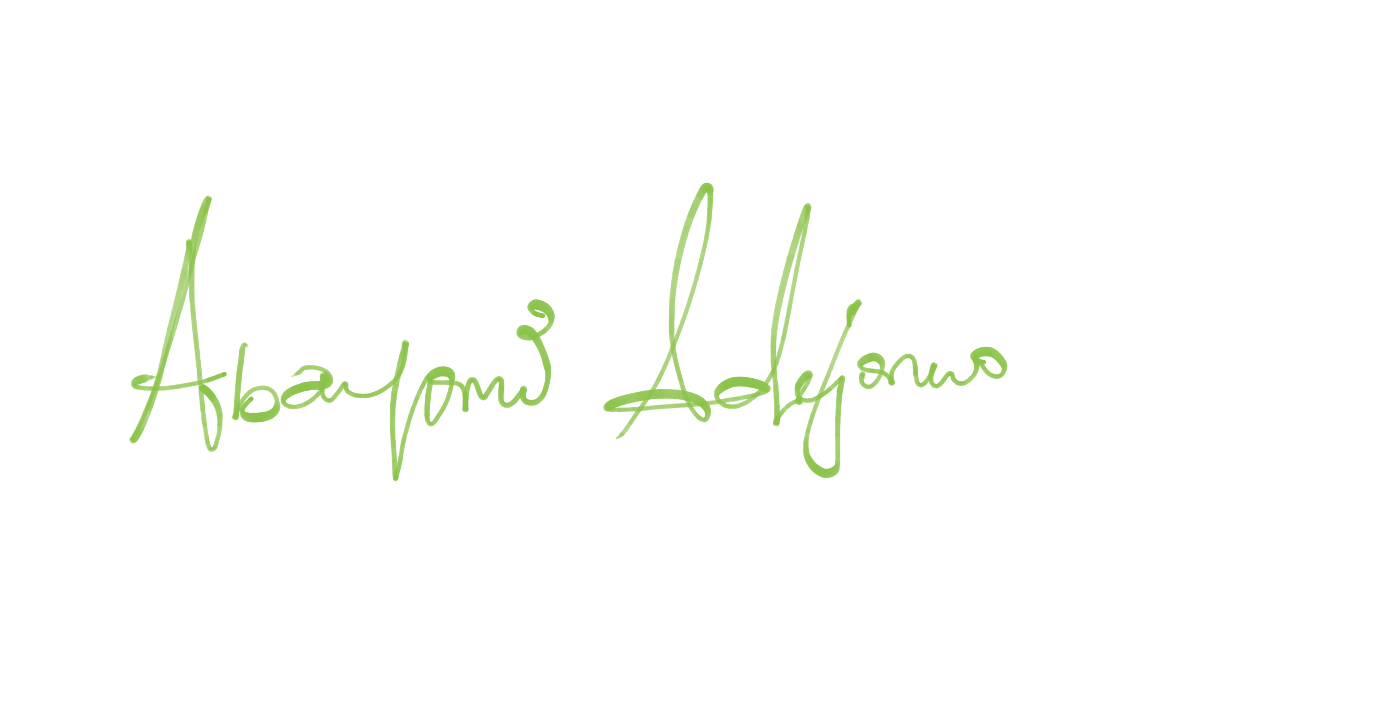 Abayomi Adejonwo